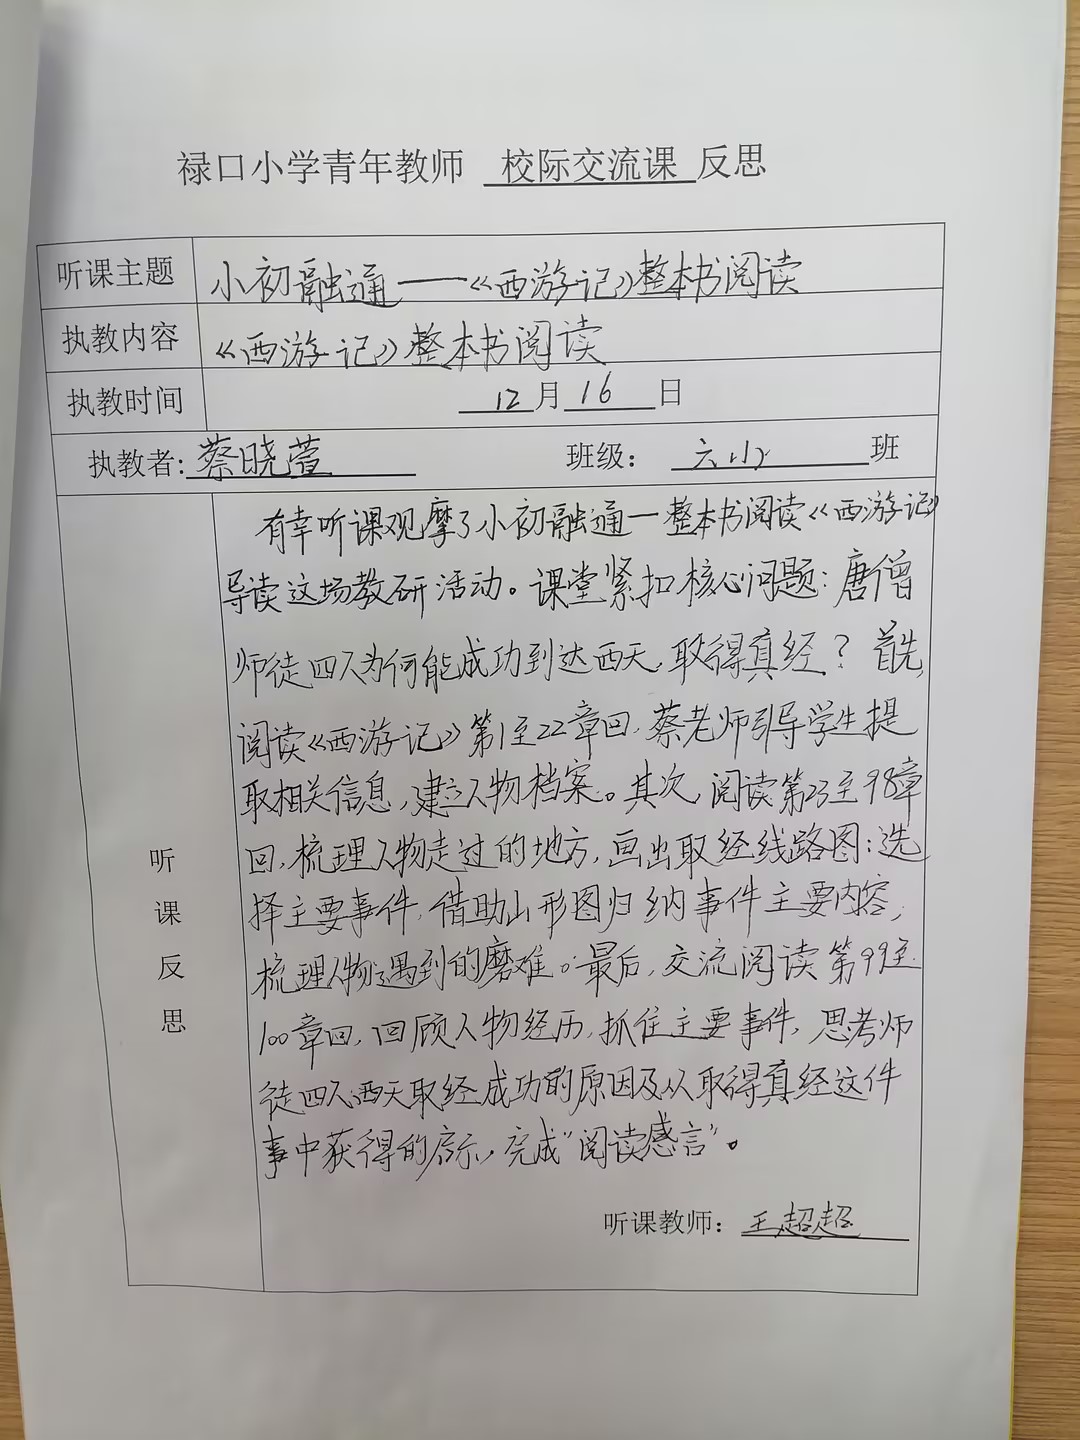 禄口小学青年教师 校际交流课 反思
听课主题 小初融通——《西游记》整本书阅读
执教内容 《西游记》整本书阅读
执教时间 12月16日
执教者：蔡晓萱 班级： 六（小） 班
有幸听课观摩了小初融通—整本书阅读《西游记》
导读这场教研活动。课堂紧扣核心问题：唐僧
师徒四人为何能成功到达西天，取得真经？首先，
阅读《西游记》第1至22章回，蔡老师引导学生提
取相关信息，建立人物档案。其次，阅读第23至98章
回，梳理人物走过的地方，画出取经线路图；选
择主要事件，借助山形图归纳事件主要内容，
梳理人物遇到的磨难。最后，交流阅读第99至
100章回，回顾人物经历，抓住主要事件，思考师
徒四人西天取经成功的原因及从取得真经这件
事中获得的启示，完成“阅读感言”。
听课反思
听课教师：王超超